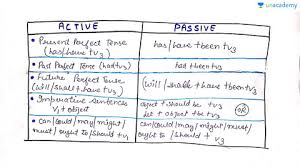 unacademy
ACTIVE
PASSIVE
Present Perfect Tense
(has/have +v3)
has/have +been +v3
Past Perfect Tense (had+v3)
had +been +v3
Future Perfect Tense
(will/shall+have +v3)
(will/shall + have +been +v3
Imperative sentences
V1 + object
object + should be +v3
OR
let + object + be +v3
can/could/may/might/
must/ought to/should +v1
can/could/may/might/must/
ought to /should + v3